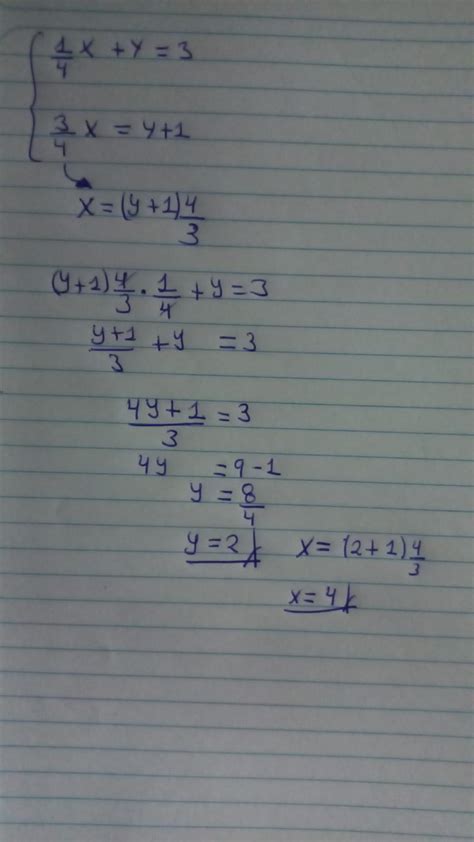 1/4 x + y = 3
3/4 x = y+1
x = (y+1) 4/3
(y+1) 4/3 · 1/4 + y = 3
y+1/3 + y = 3
4y+1/3 = 3
4y = 9-1
y = 8/4
y = 2
x = (2+1) 4/3
x = 4